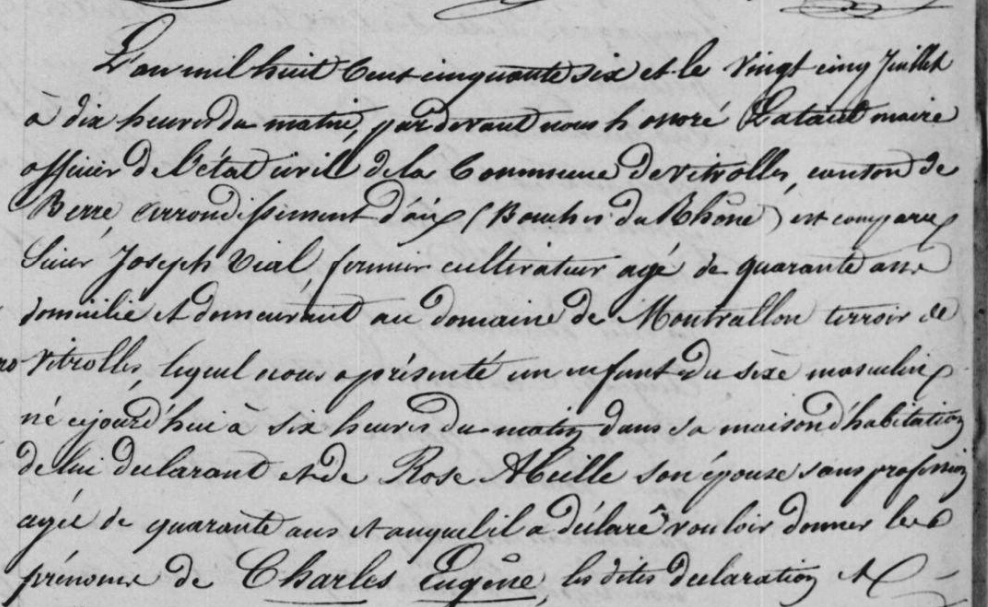 L'an mil huit Cent cinquante six et le vingt cinq Juillet
à dix heures du matin, par devant nous honoré Lataut maire
officier de l'état civil de la Commune de vitrolles, canton de
Berre, arrondissement d'aix (Bouches du Rhône) est comparu
Sieur Joseph Vial, fermier cultivateur agé de quarante ans
domicilié et demeurant au domaine de Montvallon terroir de
Vitrolles, lequel nous a présenté un enfant du sèxe masculin
né cejourd'hui à six heures du matin dans sa maison d'habitation
de lui declarant et de Rose Abeille son épouse sans profession
agée de quarante ans et auquel il a déclaré vouloir donner les
prénoms de Charles Eugène, les dites declaration et